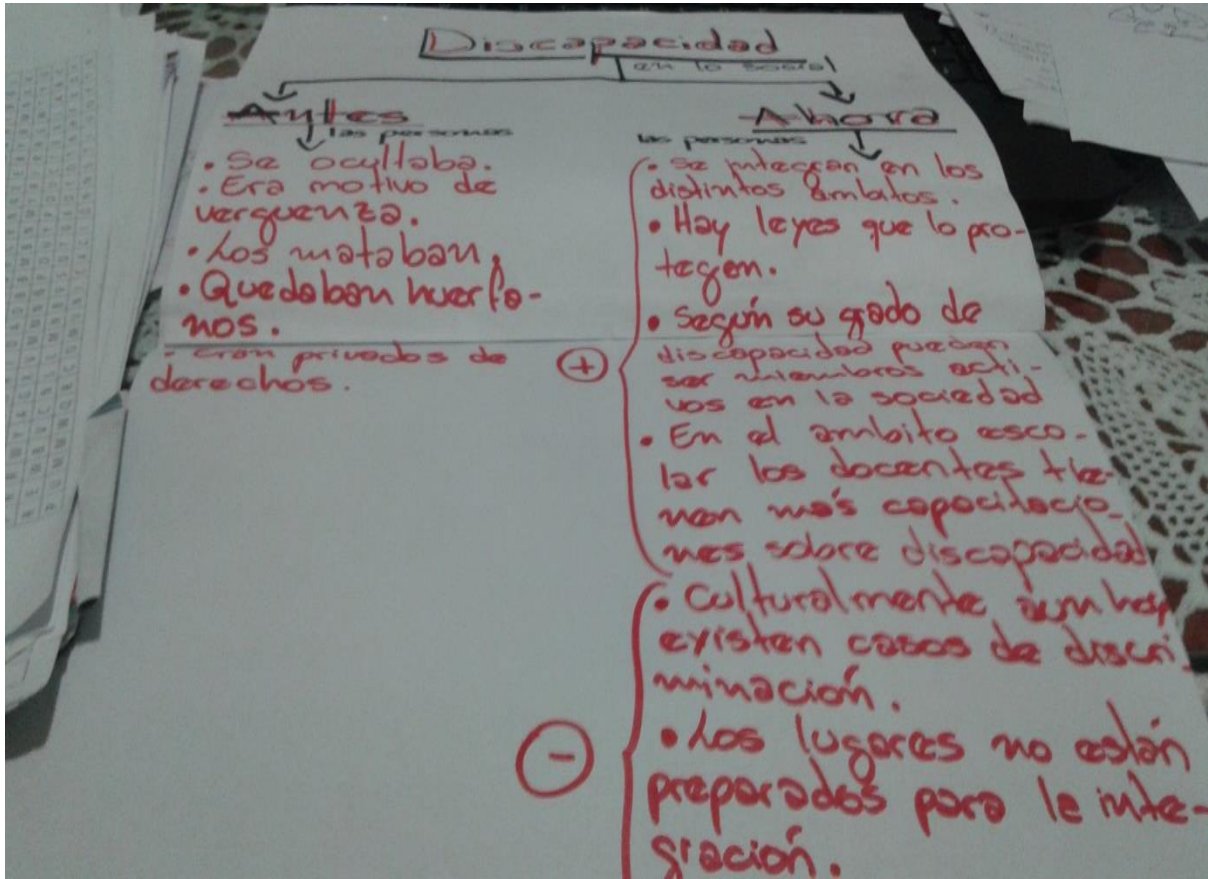 Discapacidad
en lo social
Antes
las personas
• Se ocultaba.
• Era motivo de
verguenza.
• Los mataban.
• Quedaban huerfa-
nos.
- eran privados de
derechos.
Ahora
las personas
• se integran en los
distintos ámbitos.
• Hay leyes que lo pro-
tegen.
• Según su grado de
discapacidad pueden
ser miembros acti-
vos en la sociedad
• En el ambito esco-
lar los docentes tie-
nen más capacitacio-
nes sobre discapacidad
+
• Culturalmente aun hoy
existen casos de discri-
minación.
• Los lugares no están
preparados para le inte-
gración.
-